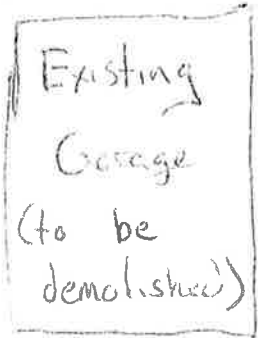 Existing
Garage
(to be
demolished)